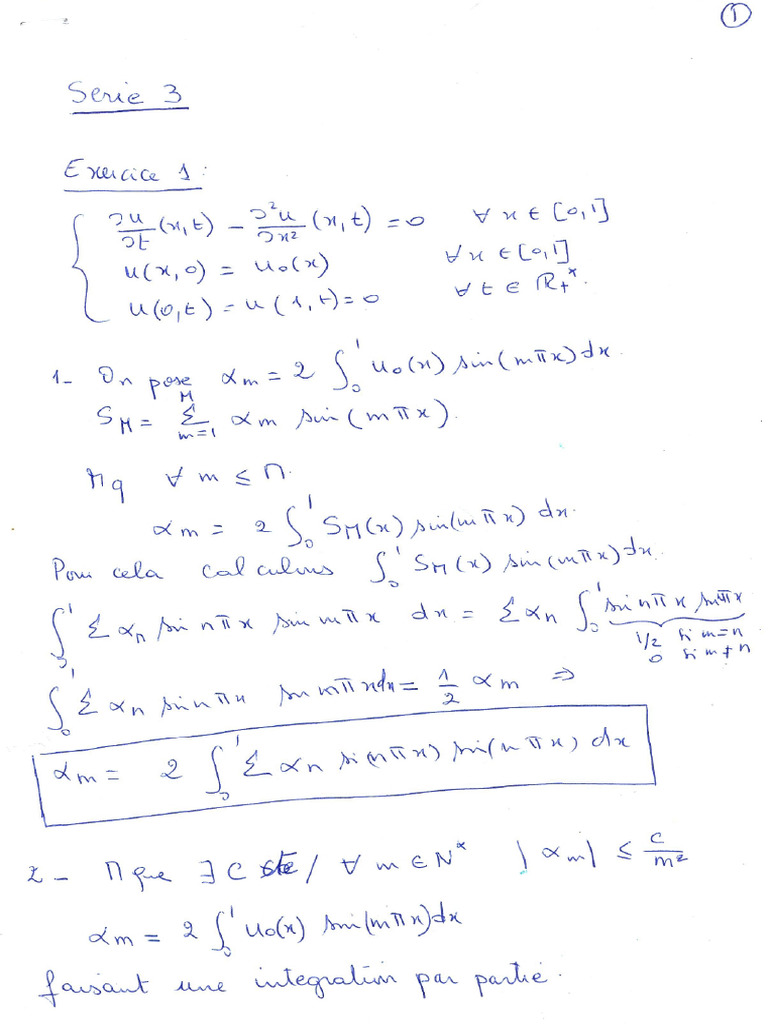 ①
Serie 3
Exercice 1:
∂u/∂t (x,t) - ∂²u/∂x² (x,t) = 0 ∀ x ∈ [0,1]
u(x,0) = u₀(x) ∀x ∈ [0,1]
u(0,t) = u(1,t) = 0 ∀ t ∈ ℝ₊*.
1- On pose αm = 2 ∫₀¹ u₀(x) sin(mπx) dx.
S_M = Σ_{m=1}^{M} αm sin(mπx).
Mq ∀ m ≤ M.
αm = 2 ∫₀¹ S_M(x) sin(mπx) dx.
Pour cela calculons ∫₀¹ S_M(x) sin(mπx) dx.
∫₀¹ Σ αn sin nπx sin mπx dx = Σ αn ∫₀¹ sin nπx sin mπx
1/2 si m=n
0 si m≠n
∫₀¹ Σ αn sin nπx sin mπx dx = 1/2 αm ⇒
αm = 2 ∫₀¹ Σ αn sin(nπx) sin(nπx) dx
2- Mque ∃ C cste / ∀ m ∈ N* |αm| ≤ C/m²
αm = 2 ∫₀¹ u₀(x) sin(mπx) dx
faisant une integration par partie.